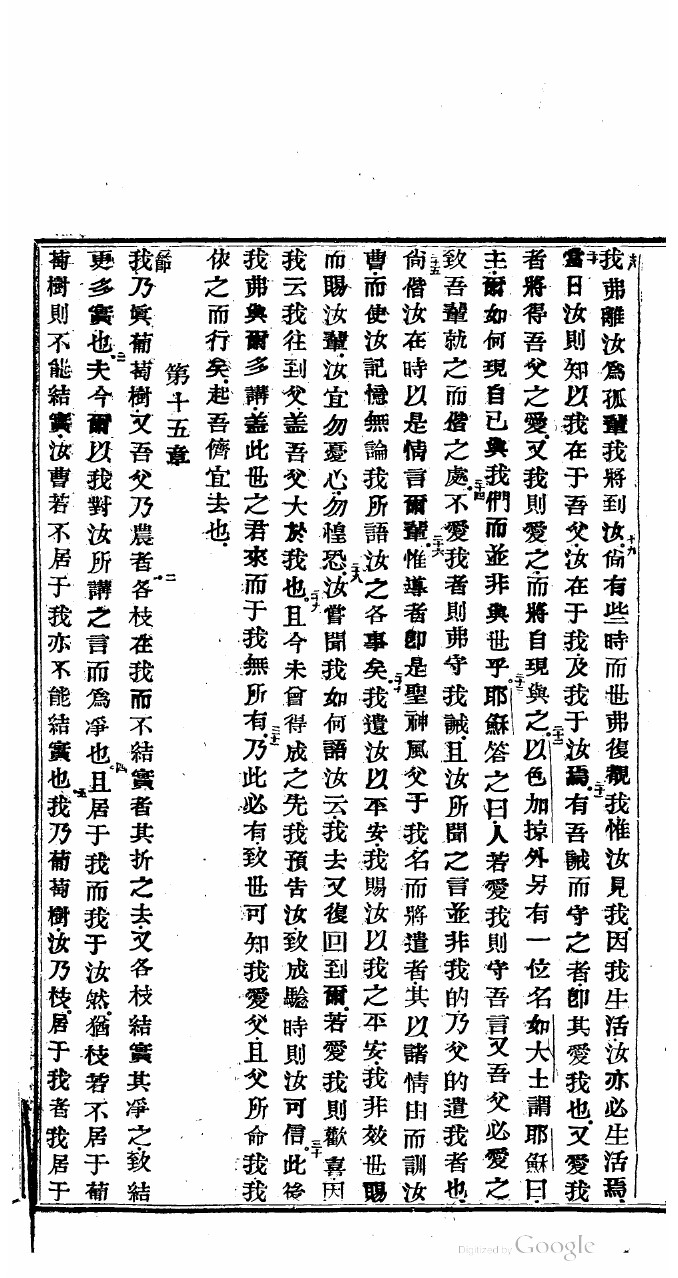 我弗離汝爲孤輩我將到汝尙有些時而世弗復覩我惟汝見我因我生活汝亦必生活焉
當日汝則知以我在于吾父汝在于我及我于汝焉有吾誡而守之者卽其愛我也又愛我
者將得吾父之愛又我則愛之而將自現與之以色加掠外另有一位名如大士謂耶穌曰
主爾如何現自已與我們而並非與世乎耶穌答之曰人若愛我則守吾言又吾父必愛之
致吾輩就之而偕之處不愛我者則弗守我誡且汝所聞之言並非我的乃父的遣我者也
尙偕汝在時以是情言爾輩惟導者卽是聖神風父于我名而將遣者其以諸情由而訓汝
曹而使汝記憶無論我所語汝之各事矣我遺汝以平安我賜汝以我之平安我非效世賜
而賜汝輩汝宜勿憂心勿惶恐汝嘗聞我如何語汝云我去又復回到爾若愛我則歡喜因
我云我往到父盖吾父大於我也且今未曾得成之先我預告汝致成騐時則汝可信此後
我弗與爾多講盖此世之君來而于我無所有乃此必有致世可知我愛父且父所命我我
依之而行矣起吾儕宜去也
第十五章
我乃眞葡萄樹又吾父乃農者各枝在我而不結實者其折之去又各枝結實其凈之致結
更多實也夫今爾以我對汝所講之言而爲凈也且居于我而我于汝然猶枝若不居于葡
萄樹則不能結實汝曹若不居于我亦不能結實也我乃葡萄樹汝乃枝居于我者我居于
Digitized by Google